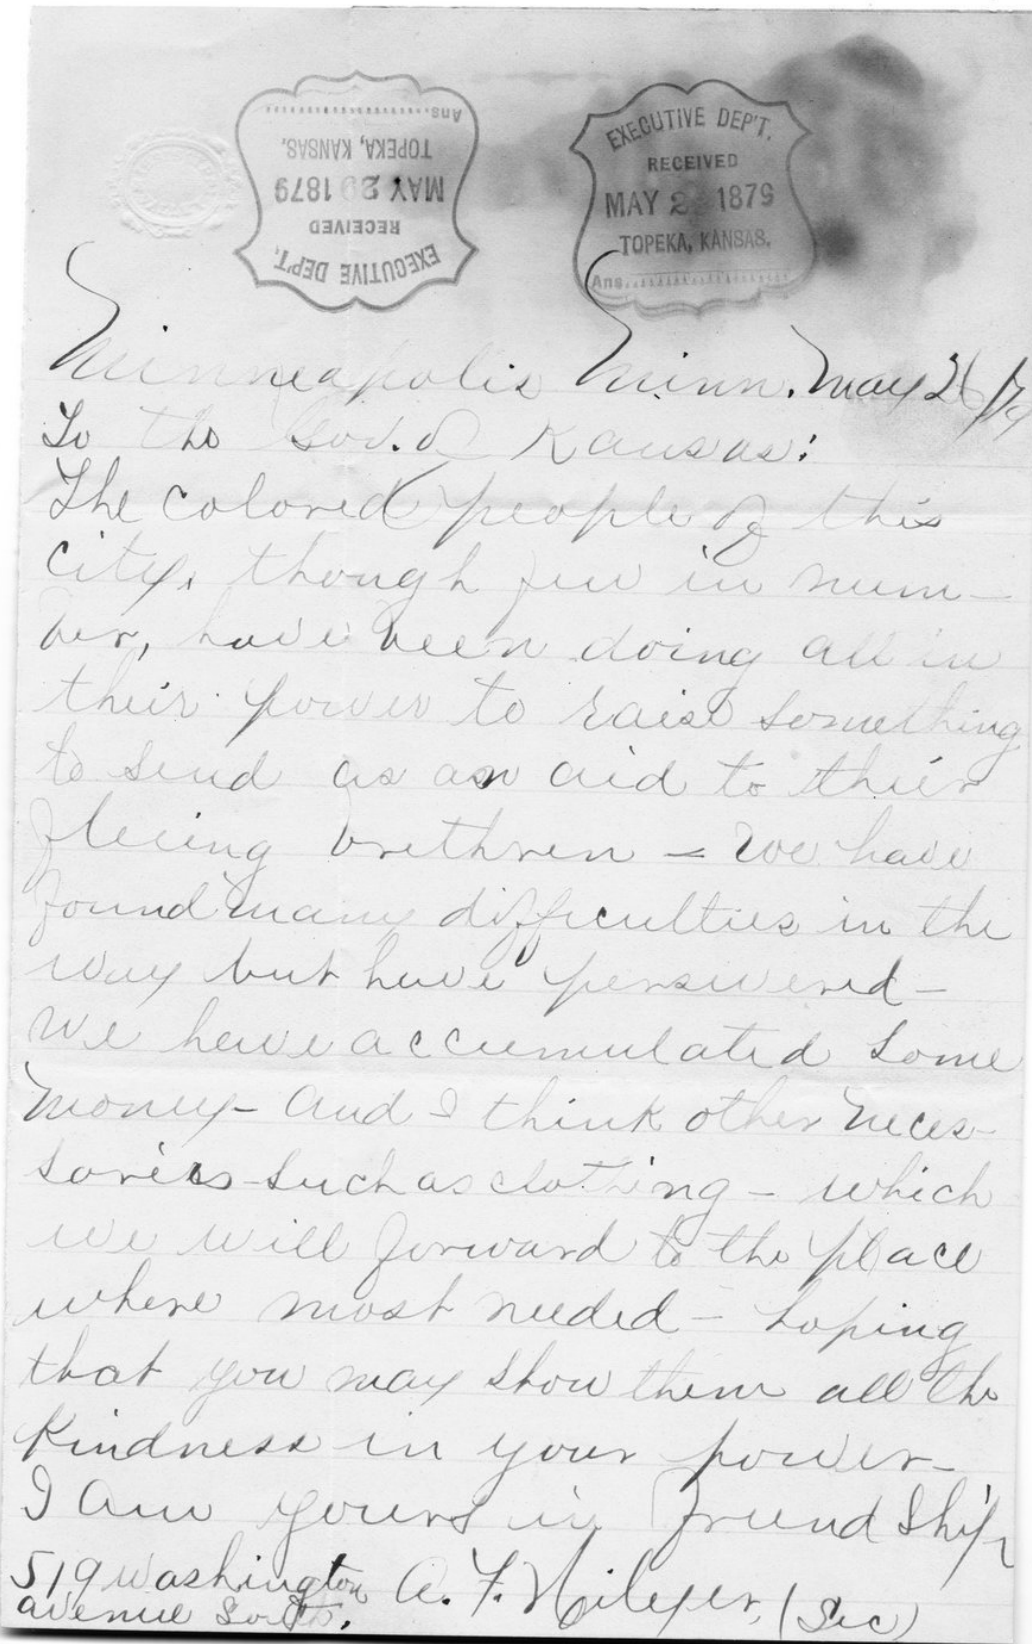 EXECUTIVE DEP'T.
RECEIVED
MAY 29 1879
TOPEKA, KANSAS.
Ans.
EXECUTIVE DEP'T.
RECEIVED
MAY 2 1879
TOPEKA, KANSAS.
Ans.
Minneapolis Minn. May 26/79
To the Gov. of Kansas:
The colored people of this
city, though few in num-
ber, have been doing all in
their power to raise something
to send as an aid to their
fleeing brethren - We have
found many difficulties in the
way but have perswered-
We have accumulated some
money- and I think other neces-
saries- such as clothing - which
we will forward to the place
where most needed - hoping
that you may show them all the
kindness in your power-
I am yours in friendship
519 Washington
avenue South.
A. F. (Sec)